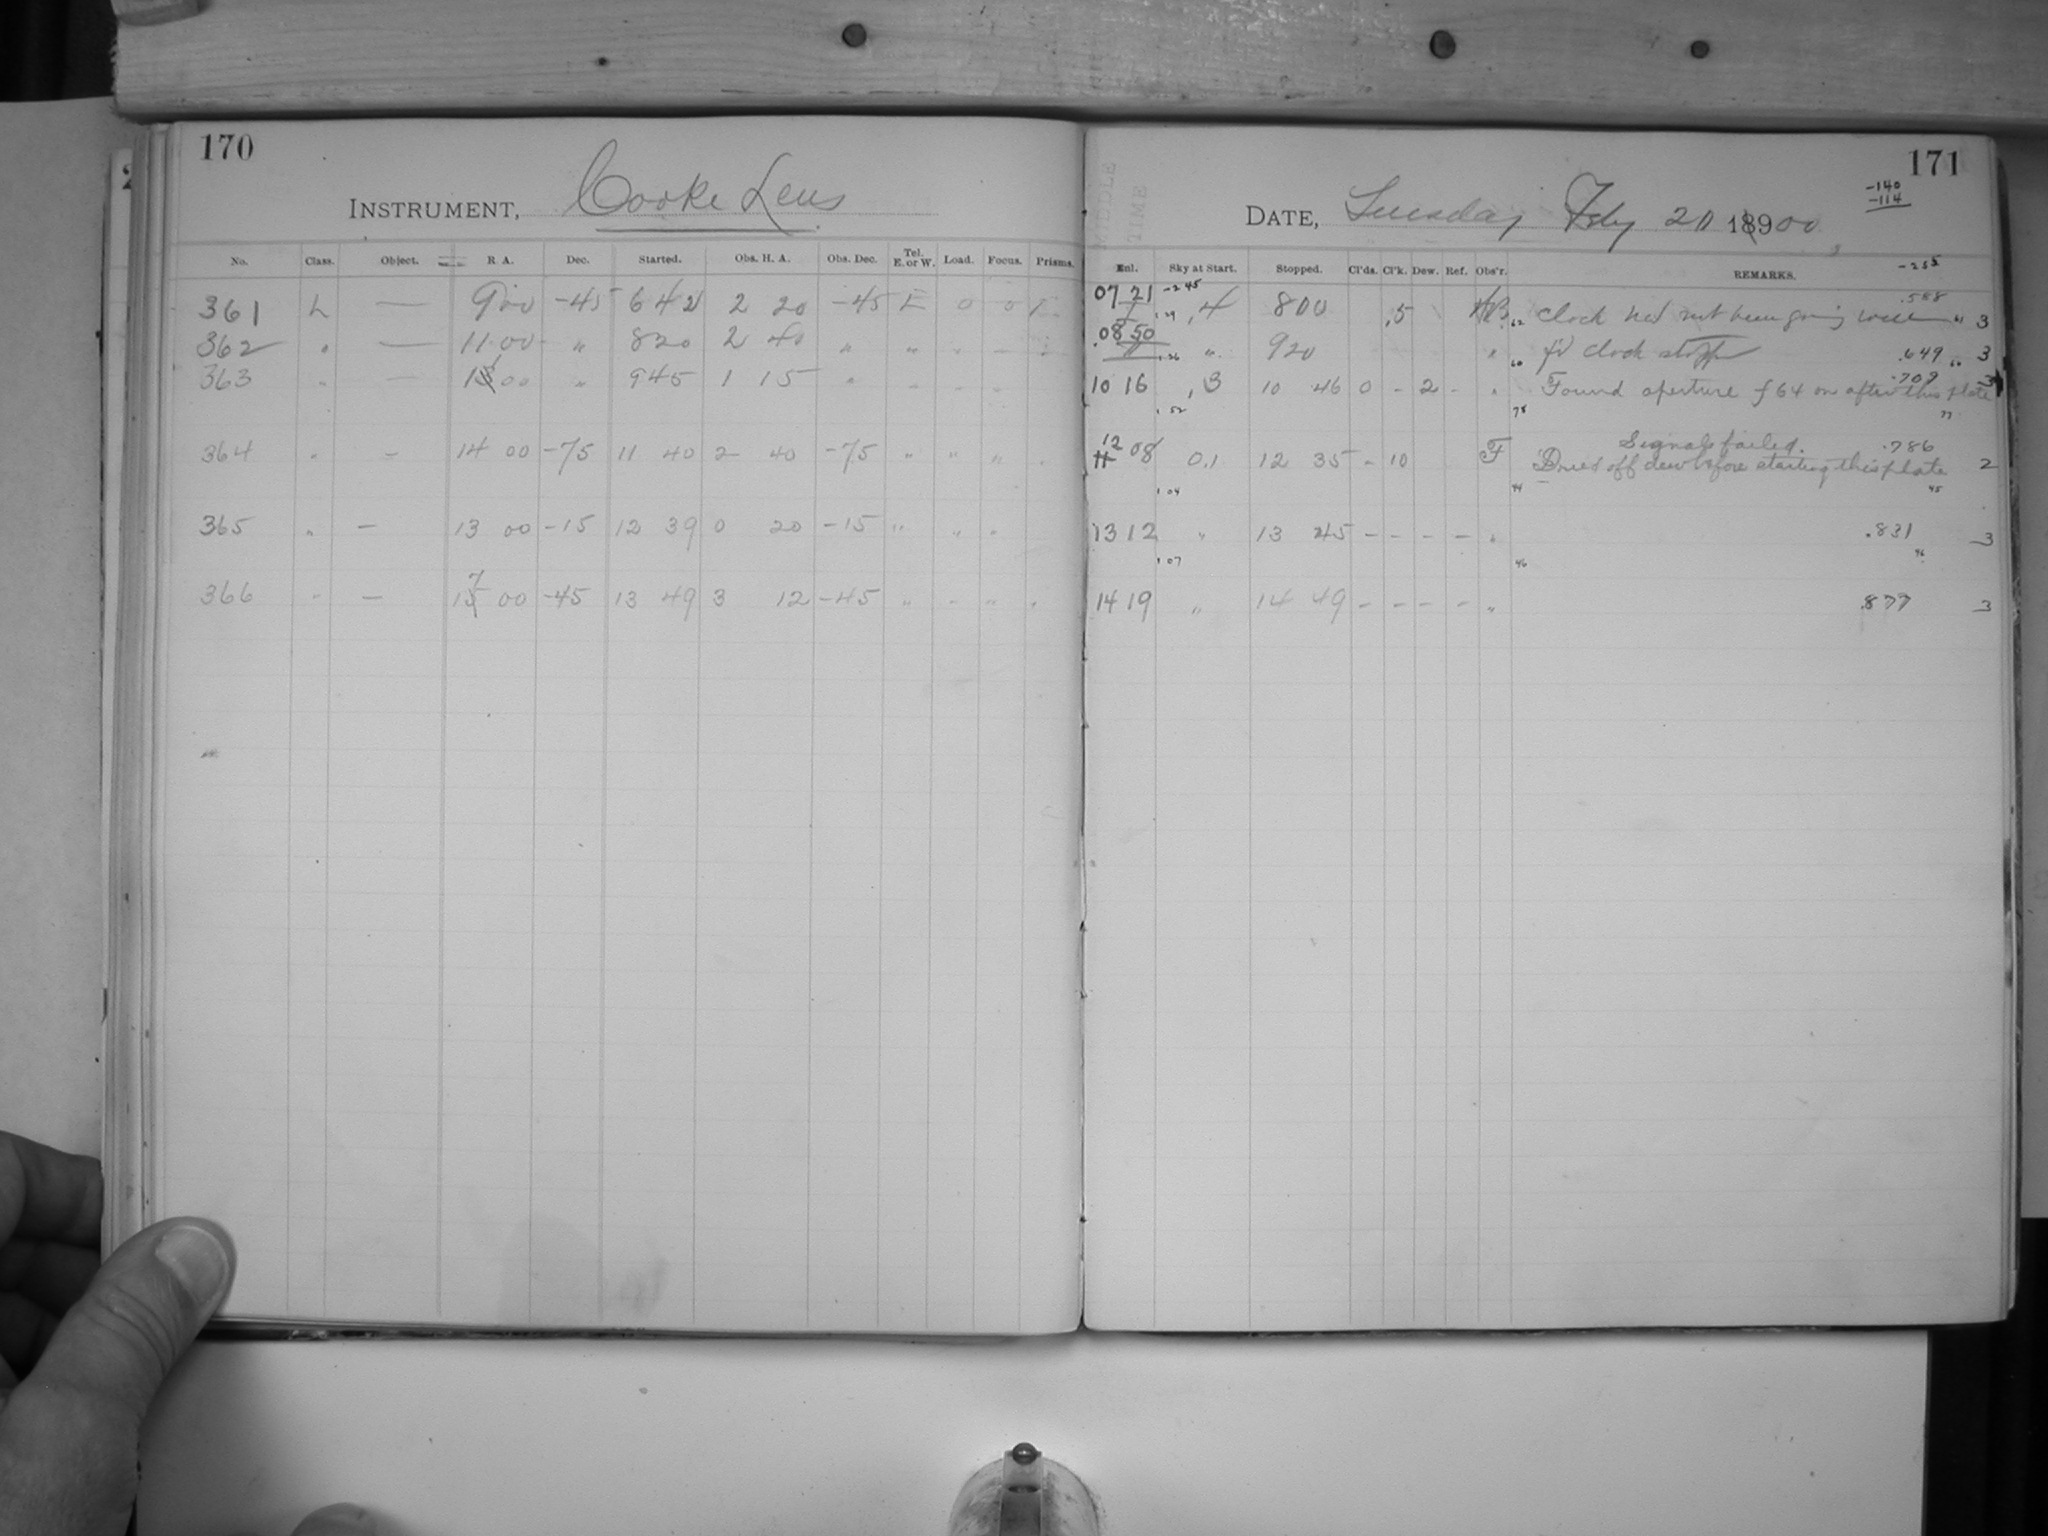 170
INSTRUMENT, Cooke Lens
No. Class. Object. R. A. Dec. Started. Obs. H. A. Obs. Dec. Tel. E. or W. Load. Focus. Prisms.
361 L — 9 00 -45 6 42 2 20 -45 E 0 0
362 " — 11 00 " 8 20 2 40 " " " " "
363 " — 1 00 " 9 45 1 15 " " " " "
364 " — 14 00 -75 11 40 2 40 -75 " " " "
365 " — 13 00 -15 12 39 0 20 -15 " " "
366 " — 17 00 -45 13 49 3 12 -45 " " " "
171
-140
-114
MIDDLE TIME
DATE, Tuesday Feb 20 1900
Enl. Sky at Start. Stopped. Cl'ds. Cl'k. Dew. Ref. Obs'r. REMARKS. -255
07 21 -245 ,4 8 00 ,5 62 Clock had not been going well .588 3
1 29
08 50 " 9 20 " 60 f'd clock .649 60 3
1 26
10 16 ,3 10 46 0 - 2 - " Found aperture f 64 on after this plate .709 3
1 52 78 77
12 08 0.1 12 35 - 10 F Signals failed. .786
Dried off dew before starting this plate 2
1 04 44 45
13 12 " 13 45 - - - - " .831 3
1 07 46 46
14 19 " 14 49 - - - - " .877 3